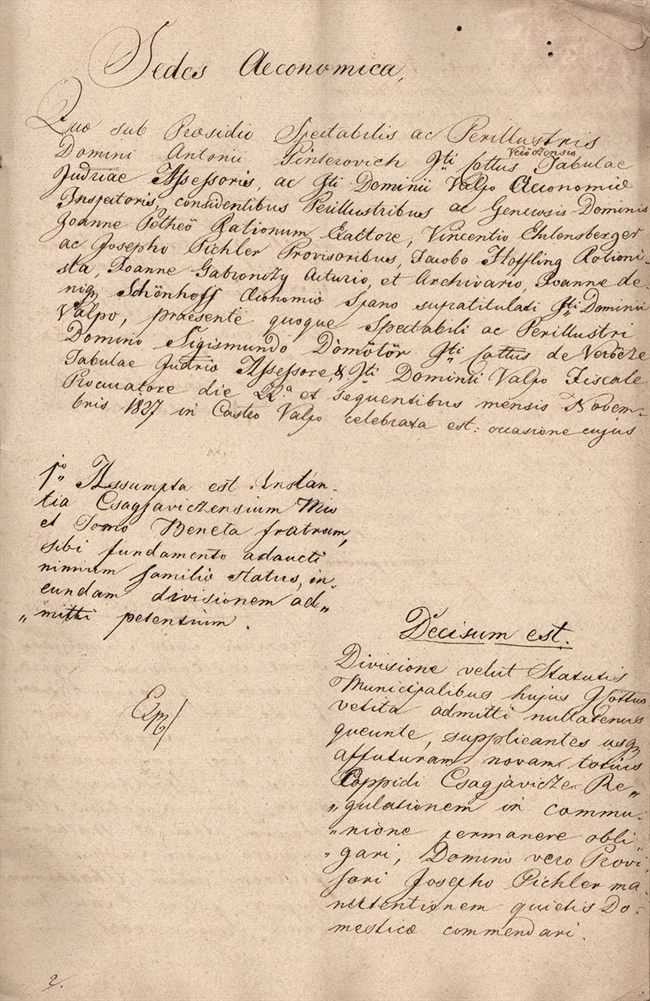 Sedes Aeconomica,
Quae sub Praesidio Spectabilis ac Perillustris
Domini Antonii Pinterovich Jtti Cottus Verőczensis Tabulae
Judriae Assessoris, ac Jtti Dominii Valpo Aeconomiae
Inspectoris, considentibus Perillustribus ac Generosis Dominis
Joanne Petheő Rationum Exactore, Vincentio Ehlensberger
ac Josepho Pichler Provisoribus, Jacobo Hoffling Rationi-
sta, Joanne Gabronszy Acturio, et Archivario, Joanne de-
niq Schönhoff Oeconomiae Spano supratitulati Jtti Dominii
Valpo, praesente quoque Spectabili ac Perillustri
Domino Sigismundo Dömötör Jtti Cottus de Verőcze
Tabulae Judriae Assessore, & Jtti Dominii Valpo Fiscale
Procuratore die 22a et sequentibus mensis Novem-
bris 1827 in Castro Valpo celebrata est: occasione cujus
1o Assumpta est Instan-
tia Csagjaviczensium Mio
et Tomo Beneta fratrum,
sibi fundamento adaucti
nimium familiae status, in-
eundam divisionem ad„
„mitti petentium.
Decisum est.
Divisione velut Statutis
Municipalibus hujus Cottus
vetita admitti nullatenus
queunte, supplicantes usq
affuturam novam totius
Oppidi Csagjavicze Re„
„gulationem in commu„
„nione permanere obli„
„gari, Domino vero Provi„
sori Josepho Pichler ma„
nutentionem quietis Do„
mesticae commendari.
2.